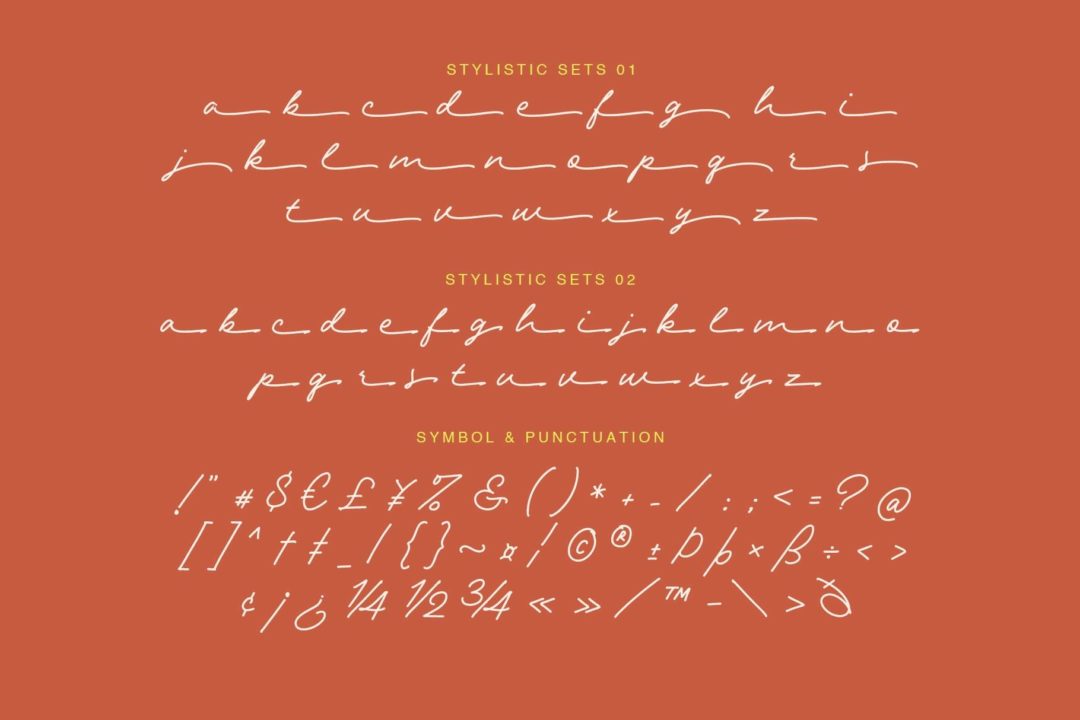 STYLISTIC SETS 01
a b c d e f g h i
j k l m n o p q r s
t u v w x y z
STYLISTIC SETS 02
a b c d e f g h i j k l m n o
p q r s t u v w x y z
SYMBOL & PUNCTUATION
! " # $ € £ ¥ % & ( ) * + - / : ; < = ? @
[ ] ^ † ‡ _ / { } ~ ¤ ¦ © ® ± Þ þ × β ÷ < >
¢ ¡ ¿ ¼ ½ ¾ « » / ™ - \ > ð